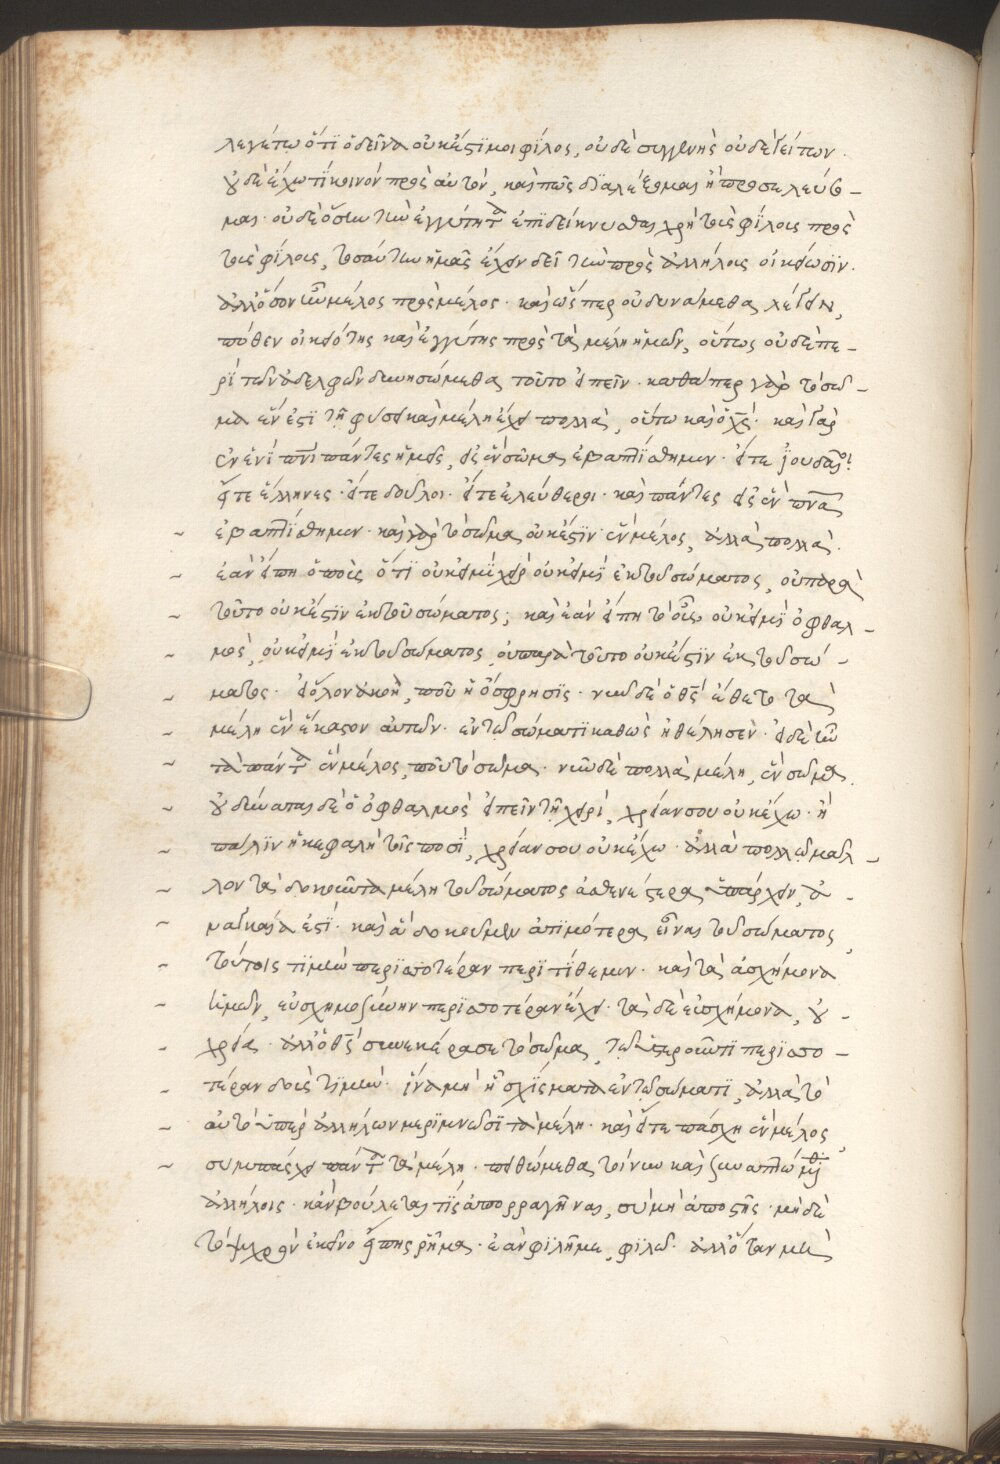 λεγέτω ὅτι ὁ δεῖνα οὐκ ἔστι μοι φίλος, οὐδὲ συγγενὴς οὐδὲ γείτων.
οὐδὲ ἔχω τι κοινὸν πρὸς αὐτὸν, καὶ πῶς διαλέξομαι ἢ προσελεύσο-
μαι. οὐδὲ ὅσην τὴν ἐγγύτητα ἐπιδείκνυσθαι χρὴ τοὺς φίλους πρὸς
τοὺς φίλους, τοσαύτην ἡμᾶς ἔχειν δεῖ τὴν πρὸς ἀλλήλους οἰκείωσιν.
ἀλλ' ὅσον μέλος πρὸς μέλος. καὶ ὥσπερ οὐ δυνάμεθα λέγειν,
πόθεν οἰκειότης καὶ ἐγγύτης πρὸς τὰ μέλη ἡμῶν, οὕτως οὐδὲ πε-
ρὶ τῶν ἀδελφῶν δυνησώμεθα τοῦτο εἰπεῖν. καθάπερ γὰρ τὸ σῶ-
μα ἕν ἐστι τῇ φύσει καὶ μέλη ἔχει πολλὰ, οὕτω καὶ ὁ χς. καὶ γὰρ
ἐν ἑνὶ πνι πάντες ἡμεῖς, εἰς ἓν σῶμα ἐβαπτίσθημεν. εἴτε ἰουδαῖοι
εἴτε ἕλληνες. εἴτε δοῦλοι. εἴτε ἐλεύθεροι. καὶ πάντες εἰς ἓν πνα
ἐβαπτίσθημεν. καὶ γὰρ τὸ σῶμα οὐκ ἔστιν ἓν μέλος, ἀλλὰ πολλὰ.
ἐὰν εἴπῃ ὁ ποὺς ὅτι οὐκ εἰμὶ χεὶρ οὐκ εἰμὶ ἐκ τοῦ σώματος, οὐ παρὰ
τοῦτο οὐκ ἔστιν ἐκ τοῦ σώματος; καὶ ἐὰν εἴπῃ τὸ οὖς, οὐκ εἰμὶ ὀφθαλ-
μὸς, οὐκ εἰμὶ ἐκ τοῦ σώματος, οὐ παρὰ τοῦτο οὐκ ἔστιν ἐκ τοῦ σώ-
ματος. εἰ ὅλον ἀκοὴ, ποῦ ἡ ὄσφρησις. νῦν δὲ ὁ θς ἔθετο τὰ
μέλη ἓν ἕκαστον αὐτῶν. ἐν τῷ σώματι καθὼς ἠθέλησεν. εἰ δὲ ἦν
τὰ πάντα ἓν μέλος, ποῦ τὸ σῶμα. νῦν δὲ πολλὰ μέλη, ἓν σῶμα.
οὐ δύναται δὲ ὁ ὀφθαλμὸς εἰπεῖν τῇ χειρὶ, χρείαν σου οὐκ ἔχω. ἢ
πάλιν ἡ κεφαλὴ τοῖς ποσὶ, χρείαν σου οὐκ ἔχω. ἀλλὰ πολλῷ μᾶλ-
λον τὰ δοκοῦντα μέλη τοῦ σώματος ἀσθενέστερα ὑπάρχειν, ἀ-
ναγκαῖά ἐστι. καὶ ἃ δοκοῦμεν ἀτιμότερα εἶναι τοῦ σώματος,
τούτοις τιμὴν περισσοτέραν περιτίθεμεν. καὶ τὰ ἀσχήμονα
ἡμῶν, εὐσχημοσύνην περισσοτέραν ἔχει. τὰ δὲ εὐσχήμονα, οὐ
χρεία. ἀλλ' ὁ θς συνεκέρασε τὸ σῶμα, τῷ ὑστεροῦντι περισσο-
τέραν δοὺς τιμὴν. ἵνα μὴ ᾖ σχίσματα ἐν τῷ σώματι, ἀλλὰ τὸ
αὐτὸ ὑπὲρ ἀλλήλων μεριμνῶσι τὰ μέλη. καὶ εἴτε πάσχῃ ἓν μέλος,
συμπάσχει πάντα τὰ μέλη. πειθώμεθα τοίνυν καὶ συναπτώμεθα
ἀλλήλοις. κἂν βούλεταί τις ἀπορραγῆναι, σὺ μὴ ἀποστῇς. μὴ δὲ
τὸ ψυχρὸν ἐκεῖνο εἴπῃς ῥῆμα. ἐὰν φιλῇ με, φιλῶ. ἀλλ' ὅταν μὴ